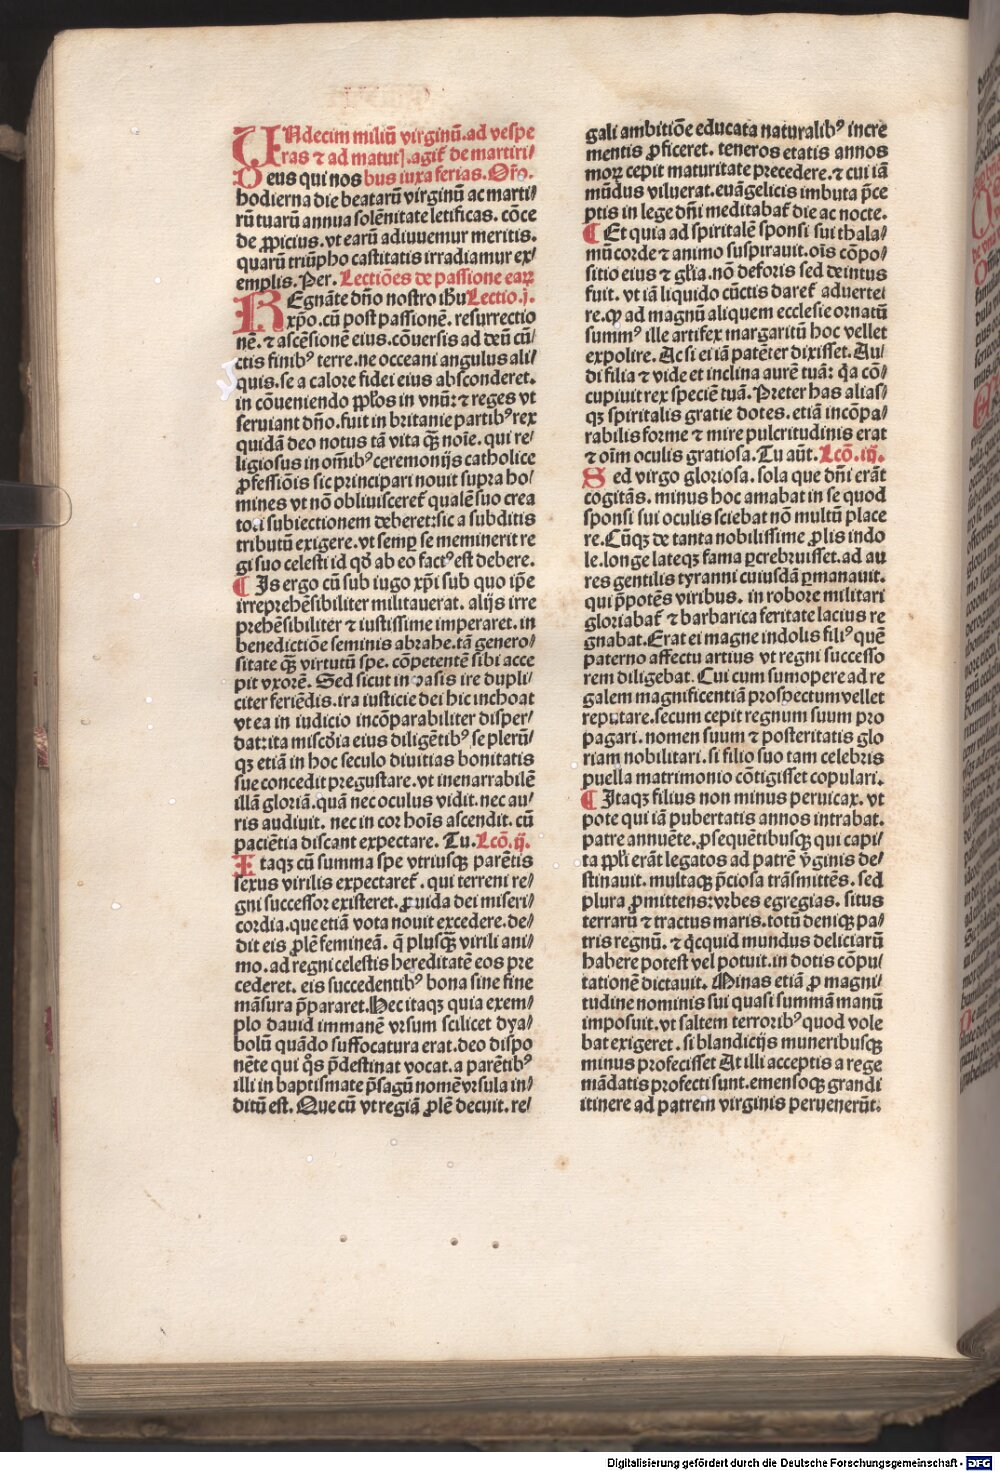 UNdecim miliū virginū.ad vespe
ras ⁊ ad matuť.agiť de martiri⸗
Deus qui nos bus iuxa ferias.Orō.
hodierna die beatarū virginū ac marti⸗
rū tuarū annua solēnitate letificas. cōce
de ꝓpicius.vt earū adiuuemur meritis.
quarū triūpho castitatis irradiamur ex⸗
emplis.Per. Lectiōes de passione earꝝ
REgnāte dn̄o nostro ihū Lectio.j.
xp̄o.cū post passionē. resurrectio
nē.⁊ ascēsionē eius.cōuersis ad deū cū⸗
ctis finibꝰ terre.ne occeani angulus ali⸗
quis.se a calore fidei eius absconderet.
in cōueniendo pp̄los in vnū:⁊ reges vt
seruiant dn̄o.fuit in britanie partibꝰ rex
quidā deo notus tā vita qꝫ̄ noīe. qui re⸗
ligiosus in om̄ibꝰ ceremonijs catholice
ꝓfessiōis sic principari nouit supra ho⸗
mines vt nō obliuisceret̄ qualē suo crea
tori subiectionem deberet:sic a subditis
tributū exigere.vt semꝑ se meminerit re
gi suo celesti id qd̄ ab eo factꝰ est debere.
¶ Is ergo cū sub iugo xp̄i sub quo ip̄e
irreprehēsibiliter militauerat. alijs irre
prehēsibiliter ⁊ iustissime imperaret. in
benedictiōe seminis abrahe. tā genero⸗
sitate qꝫ̄ virtutū spe. cōpetentē sibi acce
pit vxorē. Sed sicut in ꝯasis ire dupli⸗
citer feriēdis.ira iusticie dei hic inchoat
vt ea in iudicio incōparabiliter disper⸗
dat:ita misc̄dia eius diligētibꝰ se plerū⸗
qꝫ etiā in hoc seculo diuitias bonitatis
sue concedit pregustare.vt inenarrabilē
illā gloriā.quā nec oculus vidit.nec au⸗
ris audiuit. nec in cor hoīs ascendit. cū
paciētia discant expectare. Tu. Lcō.ij.
Itaqꝫ cū summa spe vtriusqꝫ parētis
sexus virilis expectaret̄. qui terreni re⸗
gni successor existeret. ꝓuida dei miseri⸗
cordia.que etiā vota nouit excedere.de⸗
dit eis ꝓlē femineā. q̄ plusqꝫ̄ virili ani⸗
mo.ad regni celestis hereditatē eos pre
cederet. eis succedentibꝰ bona sine fine
māsura p̄pararet.Hec itaqꝫ quia exem⸗
plo dauid immanē vrsum scilicet dya⸗
bolū quādo suffocatura erat.deo dispo
nēte qui q̄s p̄destinat vocat.a parētibꝰ
illi in baptismate p̄sagū nomē vrsula in⸗
ditū est. Que cū vt regiā ꝓlē decuit.re⸗
gali ambitiōe educata naturalibꝰ incre
mentis ꝓficeret. teneros etatis annos
morꝝ cepit maturitate precedere.⁊ cui iā
mūdus viluerat.euāgelicis imbuta p̄ce
ptis in lege dn̄i meditabat̄ die ac nocte.
¶ Et quia ad spiritalē sponsi sui thala⸗
mū corde ⁊ animo suspirauit.oīs cōpo⸗
sitio eius ⁊ gl̄ia.nō deforis sed deintus
fuit. vt iā liquido cūctis daret̄ aduerte⸗
re.qꝙ ad magnū aliquem ecclesie ornatū
summꝰ ille artifex margaritū hoc vellet
expolire. Acsi ei iā patēter dixisset.Au⸗
di filia ⁊ vide et inclina aurē tuā: q̄a cō⸗
cupiuit rex speciē tuā.Preter has alias⸗
qꝫ spiritalis gratie dotes. etiā incōpa⸗
rabilis forme ⁊ mire pulcritudinis erat
⁊ oīm oculis gratiosa.Tu aūt. Lcō.iij.
Sed virgo gloriosa. sola que dn̄i erāt
cogitās. minus hoc amabat in se quod
sponsi sui oculis sciebat nō multū place
re.Cūqꝫ de tanta nobilissime ꝓlis indo
le.longe lateqꝫ fama ꝑcrebruisset.ad au
res gentilis tyranni cuiusdā ꝑmanauit.
qui p̄potēs viribus. in robore militari
gloriabat̄ ⁊ barbarica feritate lacius re
gnabat.Erat ei magne indolis filiꝰ quē
paterno affectu artius vt regni successo
rem diligebat. Cui cum sumopere ad re
galem magnificentiā prospectum vellet
reputare.secum cepit regnum suum pro
pagari.nomen suum ⁊ posteritatis glo
riam nobilitari.si filio suo tam celebris
puella matrimonio cōtigisset copulari.
¶ Itaqꝫ filius non minus peruicax. vt
pote qui iā pubertatis annos intrabat.
patre annuēte.ꝓsequētibusqꝫ qui capi⸗
ta pp̄li erāt legatos ad patrē v̄ginis de⸗
stinauit.multaqꝫ p̄ciosa trāsmittēs. sed
plura ꝓmittens:vrbes egregias. situs
terrarū ⁊ tractus maris.totū deniqꝫ pa⸗
tris regnū. ⁊ q̄cquid mundus deliciarū
habere potest vel potuit.in dotis cōpu⸗
tationē dictauit. Minas etiā ꝓ magni⸗
tudine nominis sui quasi summā manū
imposuit.vt saltem terroribꝰ quod vole
bat exigeret. si blandicijs muneribusqꝫ
minus profecisset At illi acceptis a rege
mādatis profecti sunt.emensoqꝫ grandi
itinere ad patrem virginis peruenerūt.
Digitalisierung gefördert durch die Deutsche Forschungsgemeinschaft - DFG